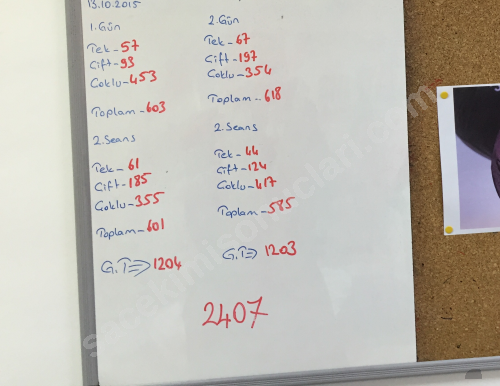 13.10.2015
1.Gün
Tek-57
Çift-93
Çoklu-453
Toplam-603
2.Seans
Tek-61
Çift-185
Çoklu-355
Toplam-601
G.T⇒1204
2.Gün
Tek-67
Çift-197
Çoklu-354
Toplam-618
2.Seans
Tek-44
Çift-124
Çoklu-417
Toplam-585
G.T⇒1203
2407